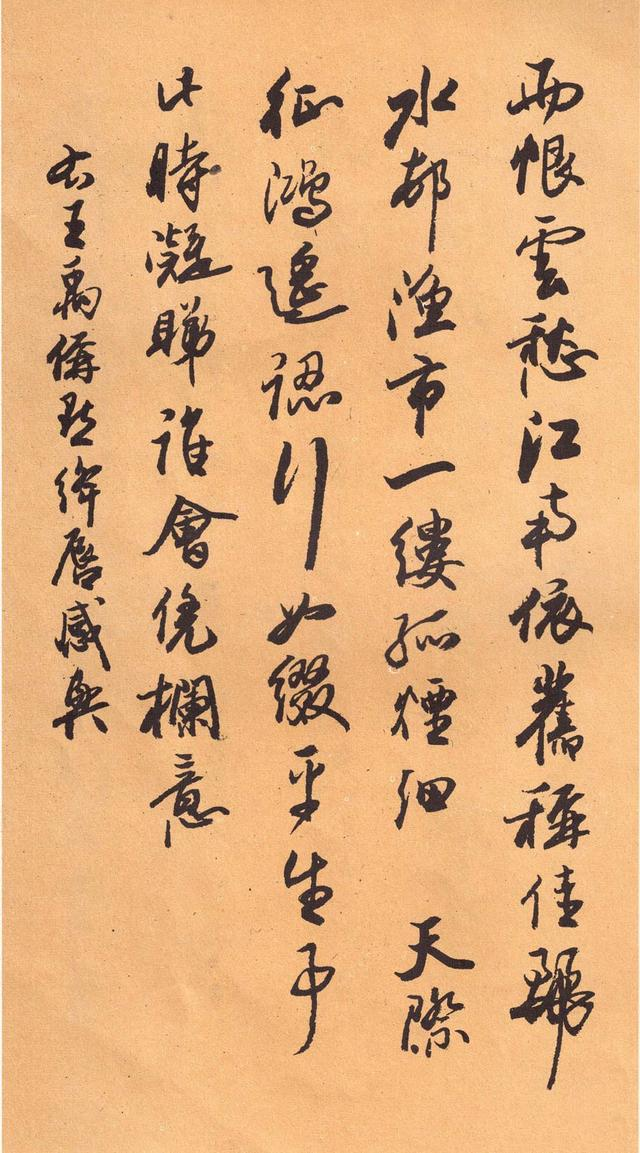 雨恨雲愁江南依舊稱佳麗
水邨漁市一縷孤煙細 天際
征鴻遙認行如綴平生事
此時凝睇誰會凭欄意
右王禹偁点絳唇感興